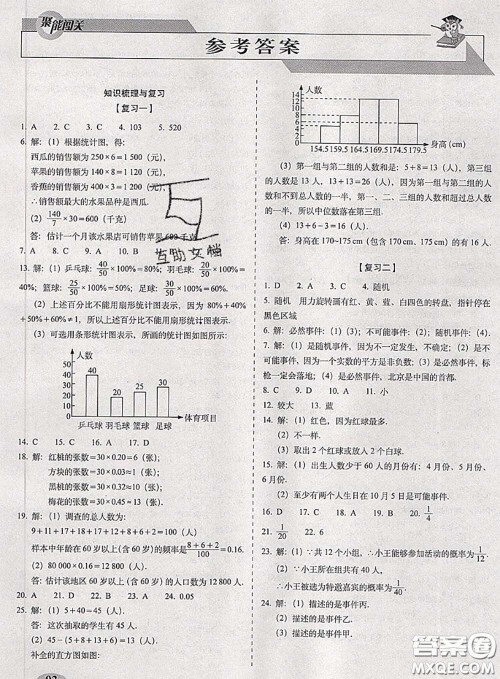 聚能闯关
参考答案
知识梳理与复习
【复习一】
1. A  2. C  3. C  4. 103  5. 520
6. 解: (1) 根据统计图, 得:
西瓜的销售额为 250×6=1 500 (元),
苹果的销售额为 140×8=1 120 (元),
香蕉的销售额为
∴销售额最大的水果品种是西瓜.
(2) 140/7×30=600 (千克)
答: 估计一个月该水果店可销售苹果 600 千克
7. A  8.
13. 解: (1) 乒乓球: 40/50×100%=80%; 羽毛球: 20/50×100%=
40%; 篮球: 25/50×100%=50%; 足球: 20/50×100%=40%.
(2) 上述百分比不能用扇形统计图表示.
不等于 1, 所以上述百分比不能用扇形统计图表示.
(3) 可选用条形统计图表示, 所画的统计图如图:
人数
40
30
20
10
0
40
20
25
20
乒乓球 羽毛球 篮球 足球 体育项目
14. C  15. C  16. A  17. D
18. 解: 红桃的张数=30×0.20=6 (张);
方块的张数=30×0.1=3 (张);
黑桃的张数=30×0.2=6 (张);
梅花的张数=30×0.5=15 (张).
19. 解: (1) 调查的总人数为:
9+11+17+18+17+12+8+6+2=100 (人),
样本中年龄在 60 岁以上 (含 60 岁) 的频率是 (8+6+2)/100=0.16.
(2) 80 000×0.16=12 800 (人).
答: 估计该地区 60 岁以上 (含 60 岁) 的人口大约为 12 800 人.
20. A  21. D  22. A  23. 24  24. 0.05
25. 解: (1) 5+40=45 (人).
答: 这次抽取的学生有 45 人.
(2) 45-(5+8+13+6)=13 (人).
补全的直方图如图:
92
人数
14
12
10
8
6
4
2
0
154.5 159.5 164.5 169.5 174.5 179.5 身高 (cm)
(3) 第一组与第二组的人数和是: 5+8=13 (人),
第三组的人数是 13 人, 13+13=26 (人). 第一、二组的人数
和不到总人数的一半, 第一、二、三组的人数和超过总人数
的一半, 所以中位数落在第三组.
(4) 13+6-3=16 (人).
答: 身高在 170~175 cm (包含 170 cm) 的大约有 16 人.
【复习二】
1. D  2. A  3. C  4. 随机
5. 随机 用力旋转漏有红、黄、蓝、白四色的转盘, 指针停在
黑色区域
6. 解: 必然事件: (1) (3); 不可能事件: (2); 随机事件: (4).
7. 解: (1) 是随机事件, 因为一定发生, 不确定. (2) 是不可能
事件, 因为一个实数的平方是非负数; (3) 是必然事件, 标
枪一定会落地; (4) 是必然事件, 北京是中国的首都.
8. C  9. C  10. A  11. 一定
12. 较大  13. 蓝
14. 解: (1) 红色, 因为红球最多.
(2) 不一样.
(3) 取出 2 个红球或放入 2 个白球.
15. 解: (1) 出生人数少于 60 人的月份有: 4 月份、5 月份、
6 月份.
(2) 至少有两个人在 10 月 5 日是可能事件.
16. B  17. D  18. C  19. D  20. 1/4
21. 1/20  22. B
23. 解: (1) ∵共 12 个小组, ∴小王能参加活动的概率为 1/12.
(2) ∵小王所在组共有 40 人, ∴小王被选为特邀嘉宾的概率为 1/40.
24. 解: (1) 描述的是事件丙.
(2) 描述的是事件乙.
(3) 描述的是事件甲.
互助文档
答案圈
MXQE.COM